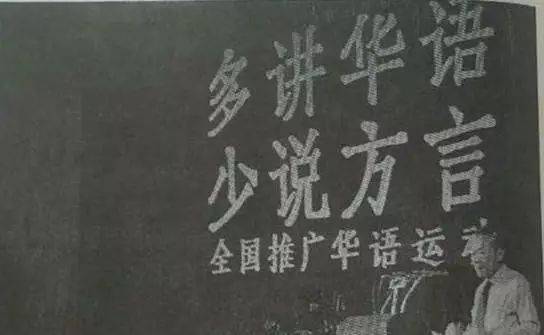 多讲华语
少说方言
全国推广华语运动